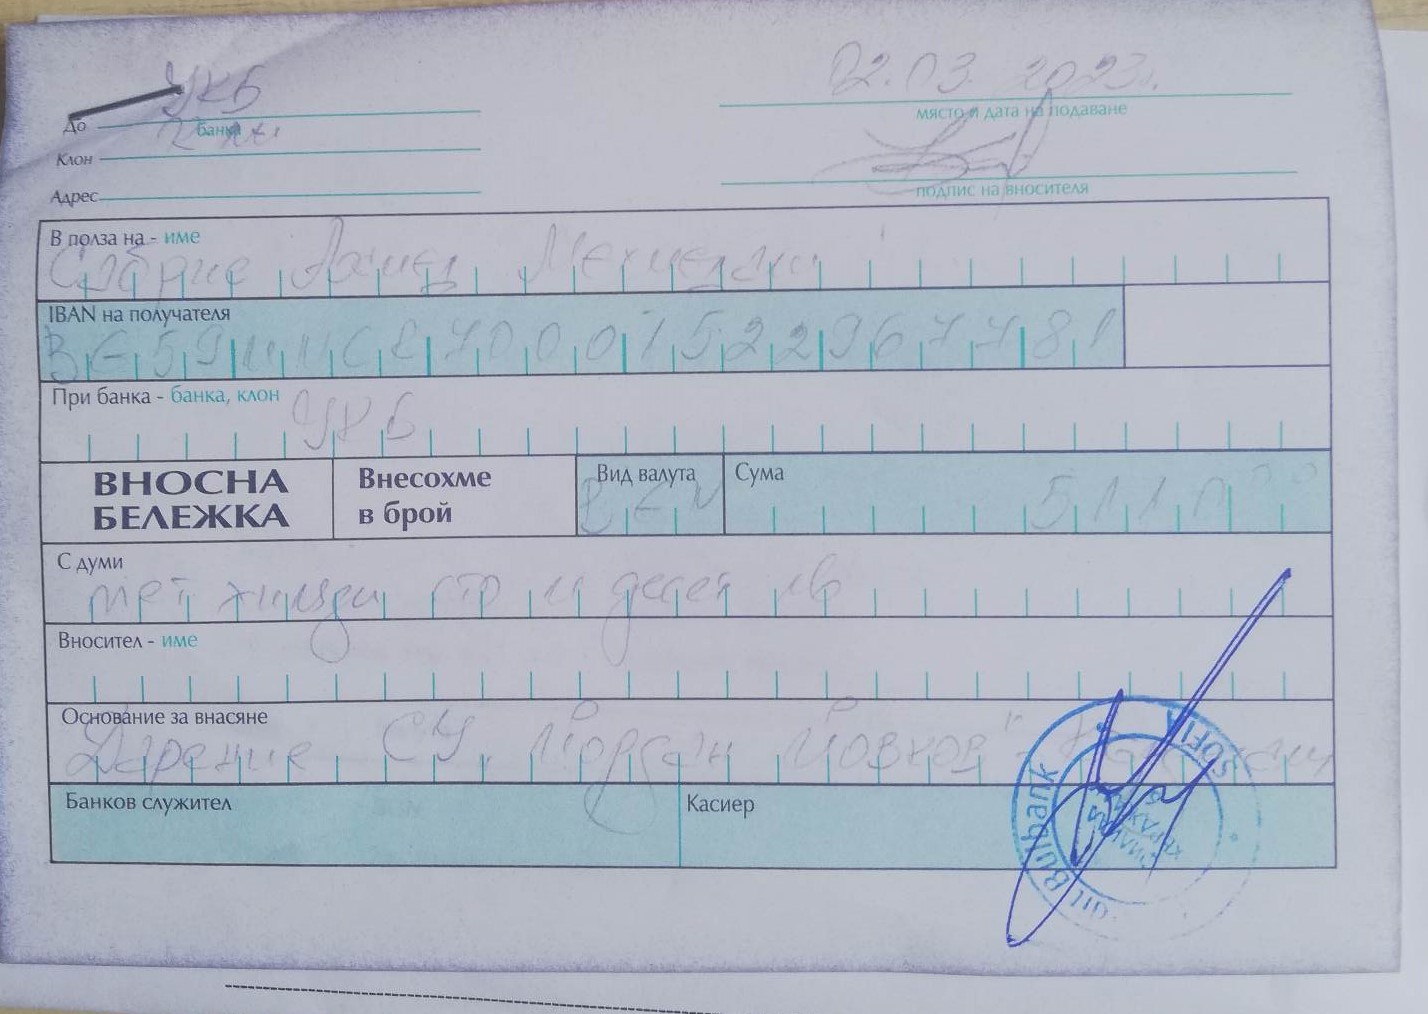 УКБ
02.03.2023г.
До
банка
място и дата на подаване
Клон
Адрес
подпис на вносителя
В полза на - име
Сабрие Ахмед
IBAN на получателя
При банка - банка, клон
УКБ
ВНОСНА БЕЛЕЖКА
Внесохме в брой
Вид валута
BGN
Сума
5110 00
С думи
пет хиляди сто и десет лв
Вносител - име
Основание за внасяне
Дарение СУ "Йордан Йовков"
Банков служител
Касиер
Bulbank
SOFIA